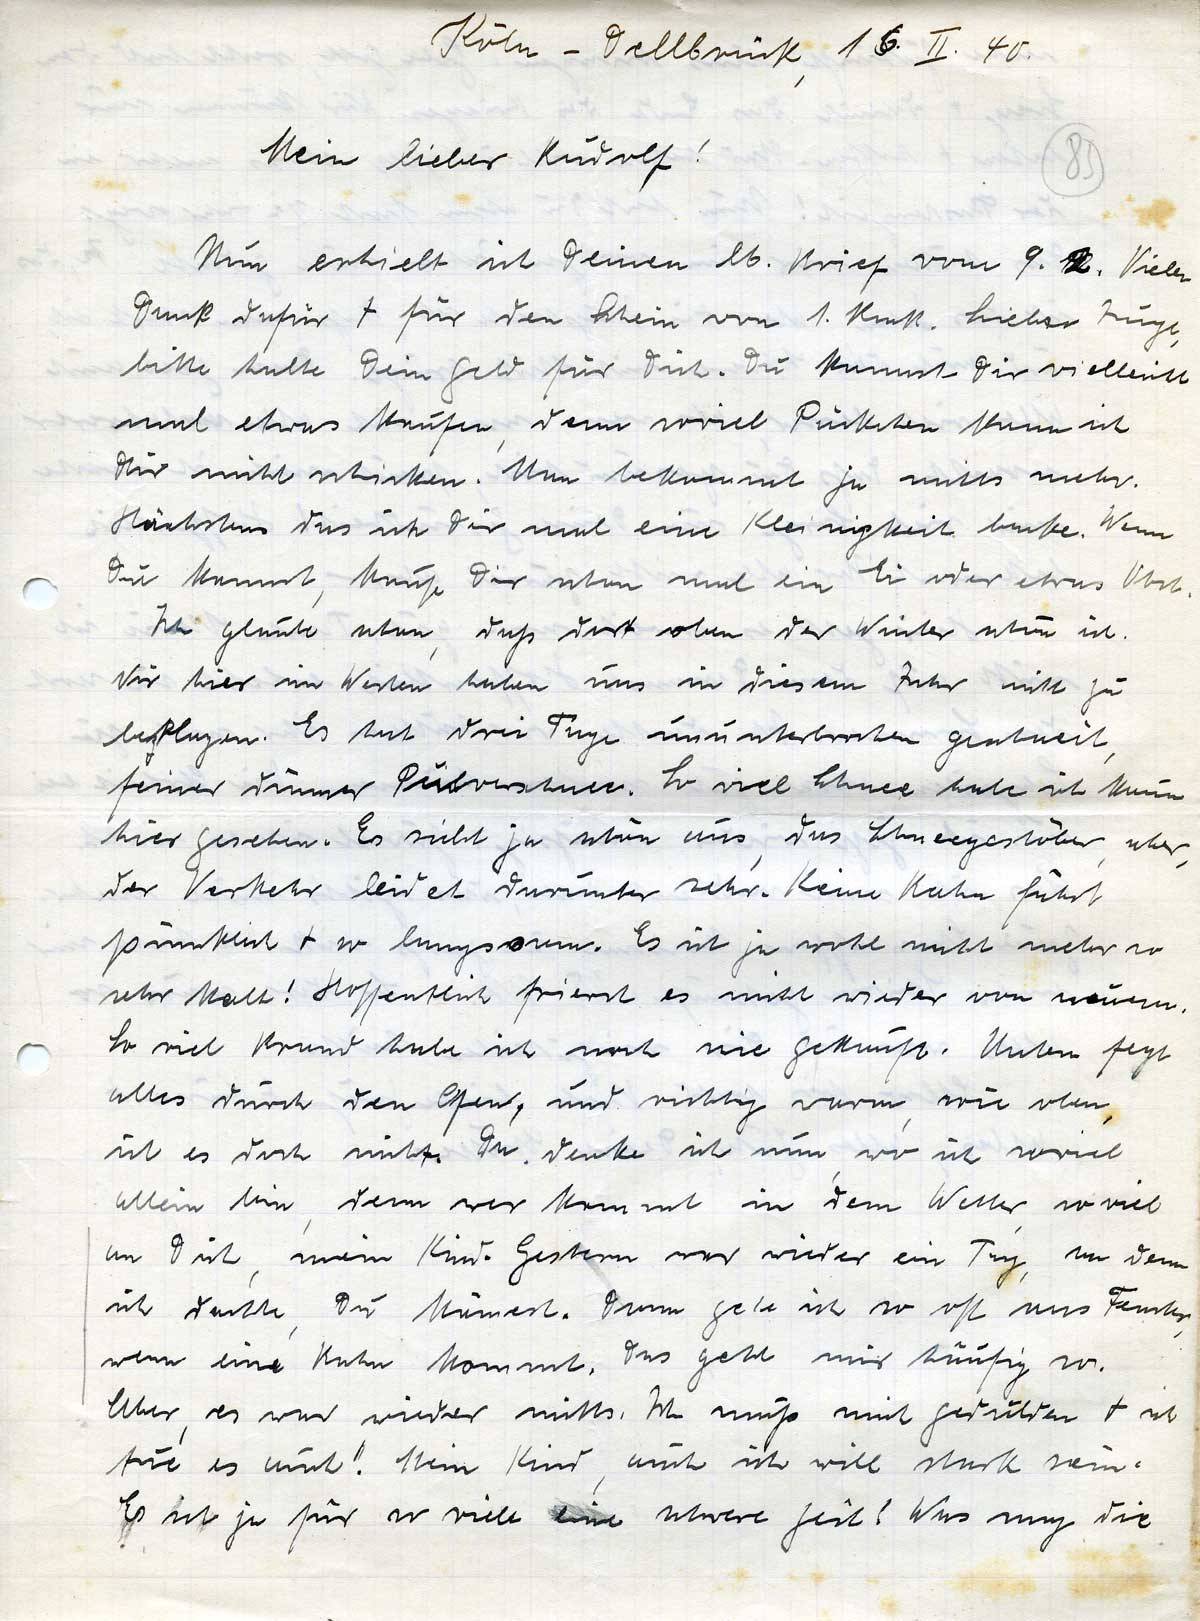 Köln - Dellbrück, 16. II. 40.
85
Mein lieber Rudolf!
Nun erhielt ich Deinen lb. Brief vom 9. 2. Vielen
Dank dafür + für den Schein von 1. Rmk. Lieber Junge,
bitte halte Dein Geld für Dich. Du kannst Dir vielleicht
mal etwas kaufen, denn soviel Päckchen kann ich
Dir nicht schicken. Man bekommt ja nichts mehr.
Höchstens das ich Dir mal eine Kleinigkeit backe. Wenn
Du kannst, kaufe Dir schon mal ein Ei oder etwas Obst.
Ich glaube schon, daß dort oben der Winter schön ist.
Wir hier im Westen haben uns in diesem Jahr nicht zu
beklagen. Es hat drei Tage ununterbrochen geschneit,
feiner dünner Pulverschnee. So viel Schnee habe ich kaum
hier gesehen. Es sieht ja schön aus, das Schneegestöber, aber,
der Verkehr leidet darunter sehr. Keine Bahn fährt
pünktlich + so langsam. Es ist ja wohl nicht mehr so
sehr kalt! Hoffentlich friert es nicht wieder von neuem.
So viel Brand habe ich noch nie gekauft. Unten fegt
alles durch den Ofen, und richtig warm, wie oben,
ist es doch nicht. Da denke ich nun, wo ich soviel
allein bin, denn wer kommt in dem Wetter, so viel
an Dich, mein Kind. Gestern war wieder ein Tag, an dem
ich dachte, Du kämest. Dann gehe ich so oft ans Fenster,
wenn eine Bahn kommt. Das geht mir häufig so.
Aber, es war wieder nichts. Ich muß mich gedulden + ich
tue es auch! Mein Kind, auch ich will stark sein.
Es ist ja für so viele eine schwere Zeit! Was mag die